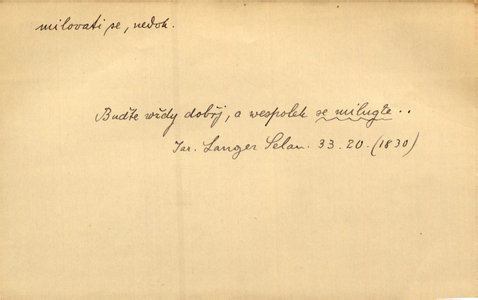 milovati se, nedok.
Buďte wždy dobřj, a wespolek se milugte..
Jar. Langer Selan. 33.20. (1830)